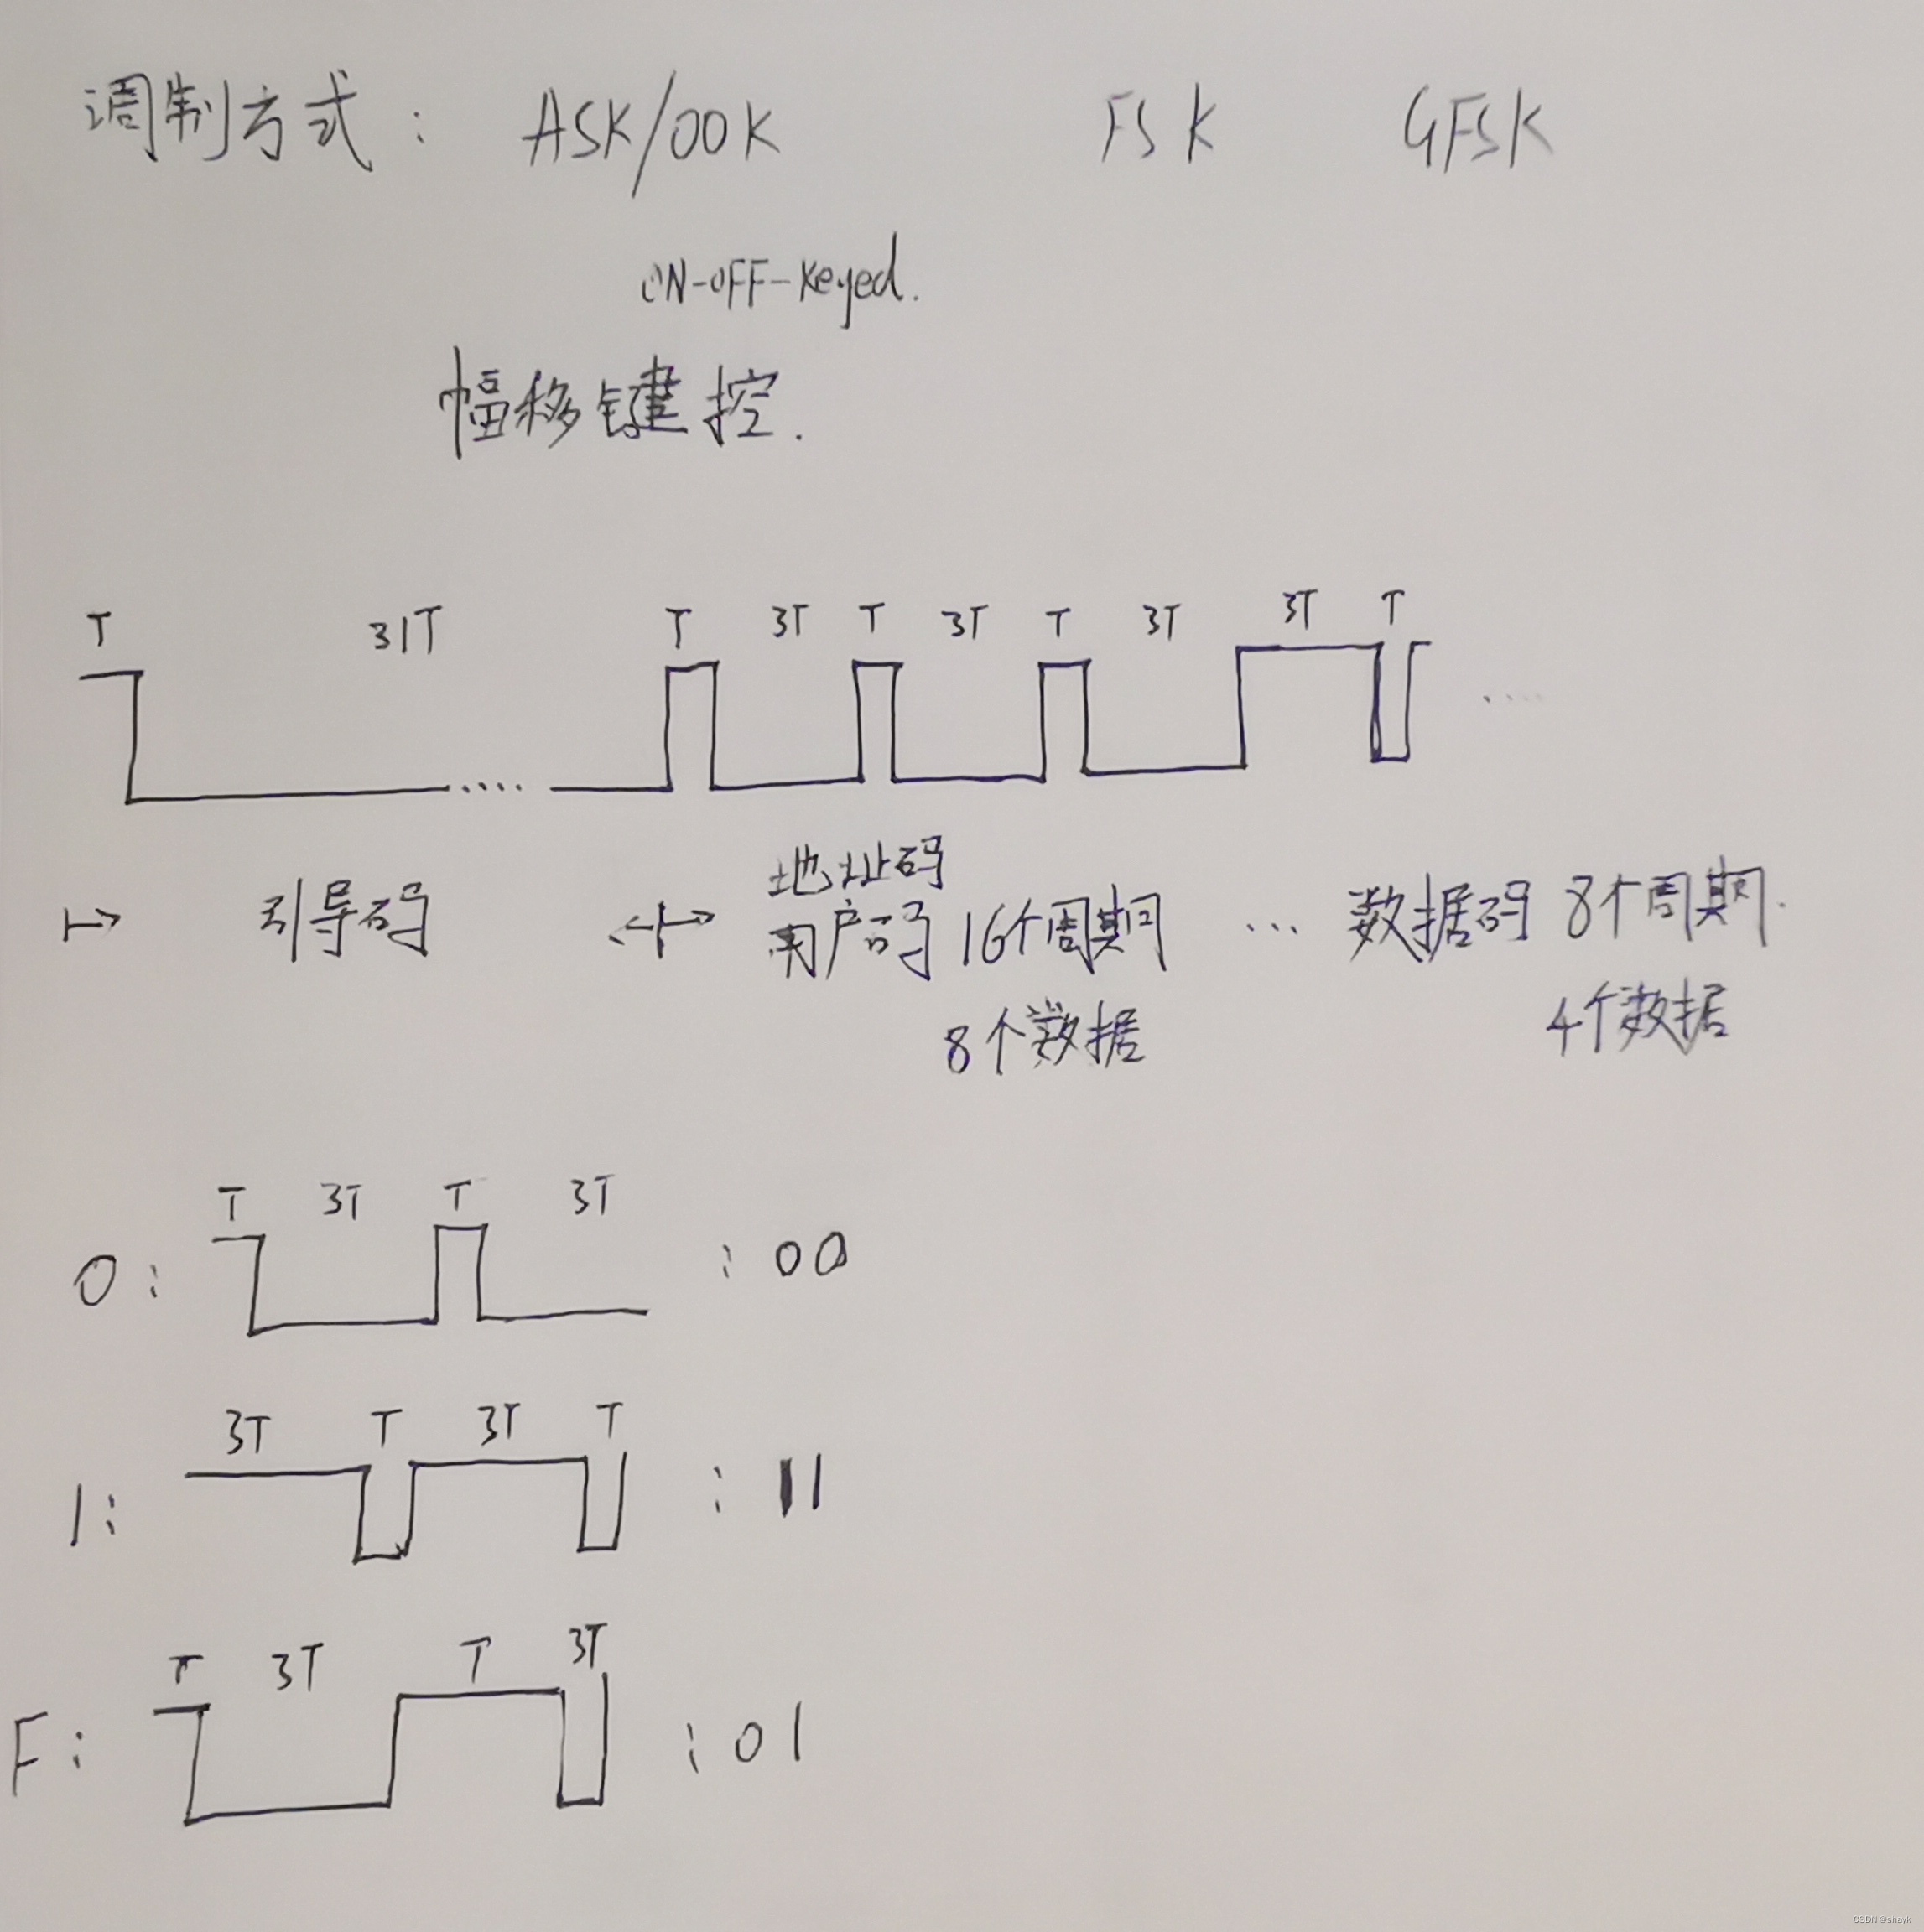 调制方式: ASK/OOK FSK GFSK
ON-OFF-Keyed.
幅移键控.
T 31T T 3T T 3T T 3T 3T T
引导码
地址码
用户码 16个周期 ... 数据码 8个周期.
8个数据 4个数据
T 3T T 3T
0: : 00
3T T 3T T
1: : 11
T 3T T 3T
F: : 01
CSDN @shayk